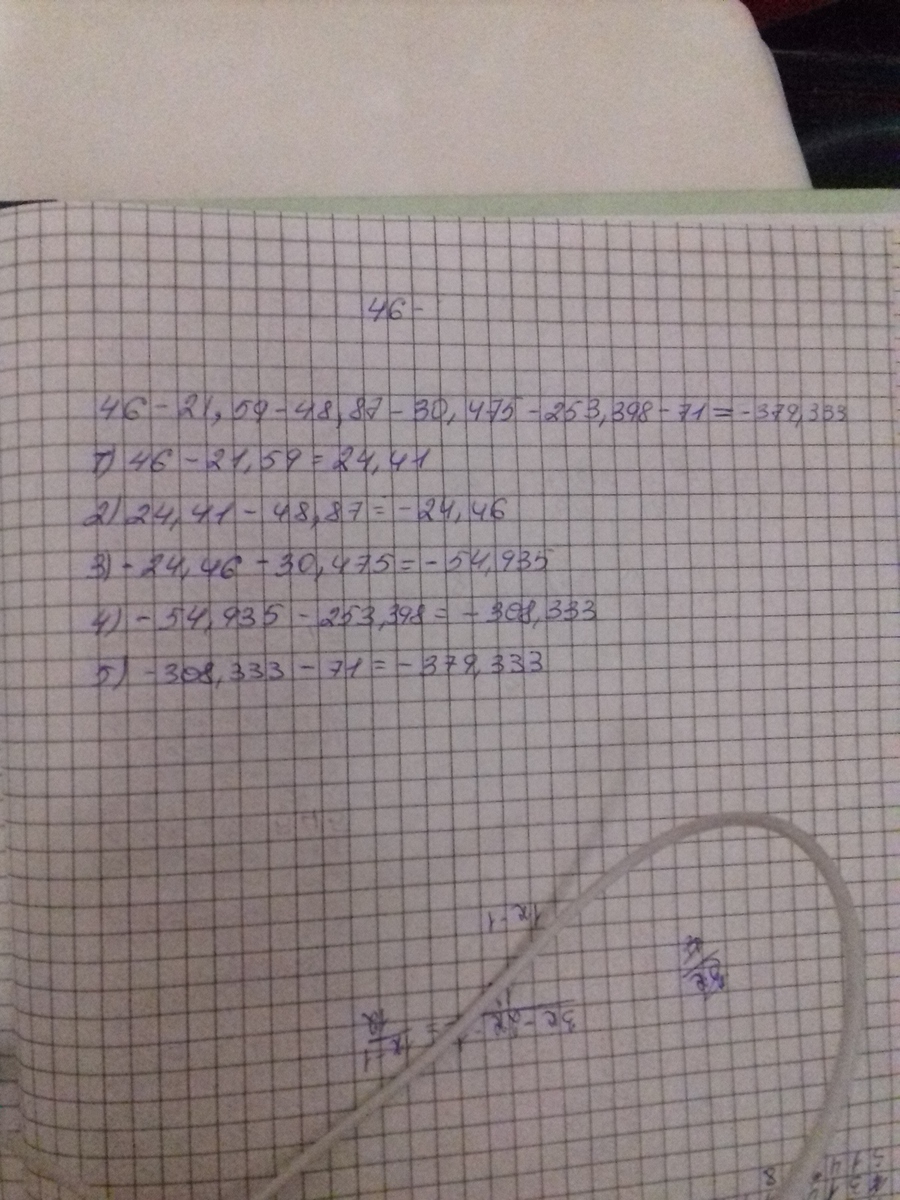 46-
46-21,59-48,87-30,475-253,398-71=-379,333
1) 46-21,59=24,41
2) 24,41-48,87=-24,46
3) -24,46-30,475=-54,935
4) -54,935-253,398=-308,333
5) -308,333-71=-379,333
8